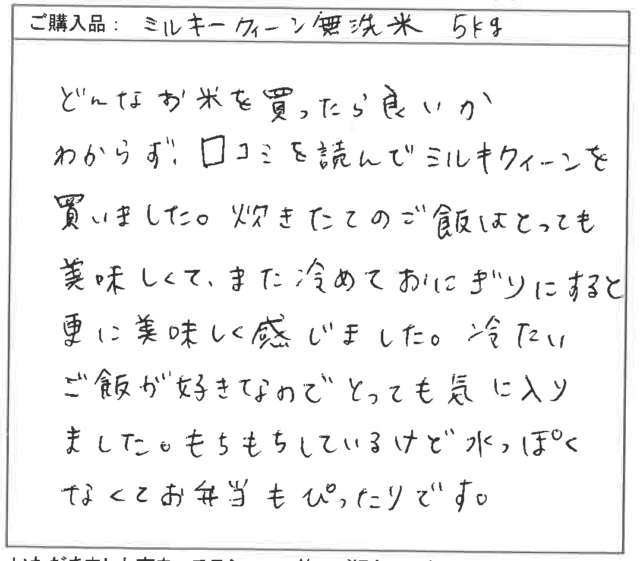 ご購入品： ミルキークィーン無洗米 5kg
どんなお米を買ったら良いか
わからず、口コミを読んでミルキクィーンを
買いました。炊きたてのご飯はとっても
美味しくて、また冷めておにぎりにすると
更に美味しく感じました。冷たい
ご飯が好きなのでとっても気に入り
ました。もちもちしているけど水っぽく
なくてお弁当もぴったりです。